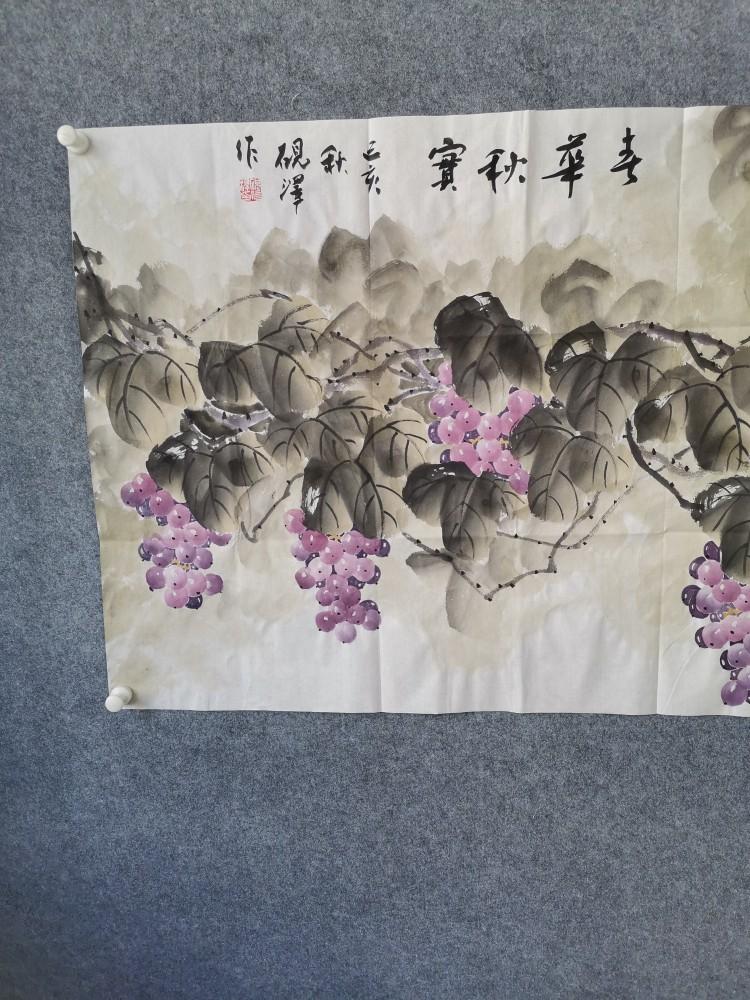 春華秋實
己亥
秋
硯澤
作